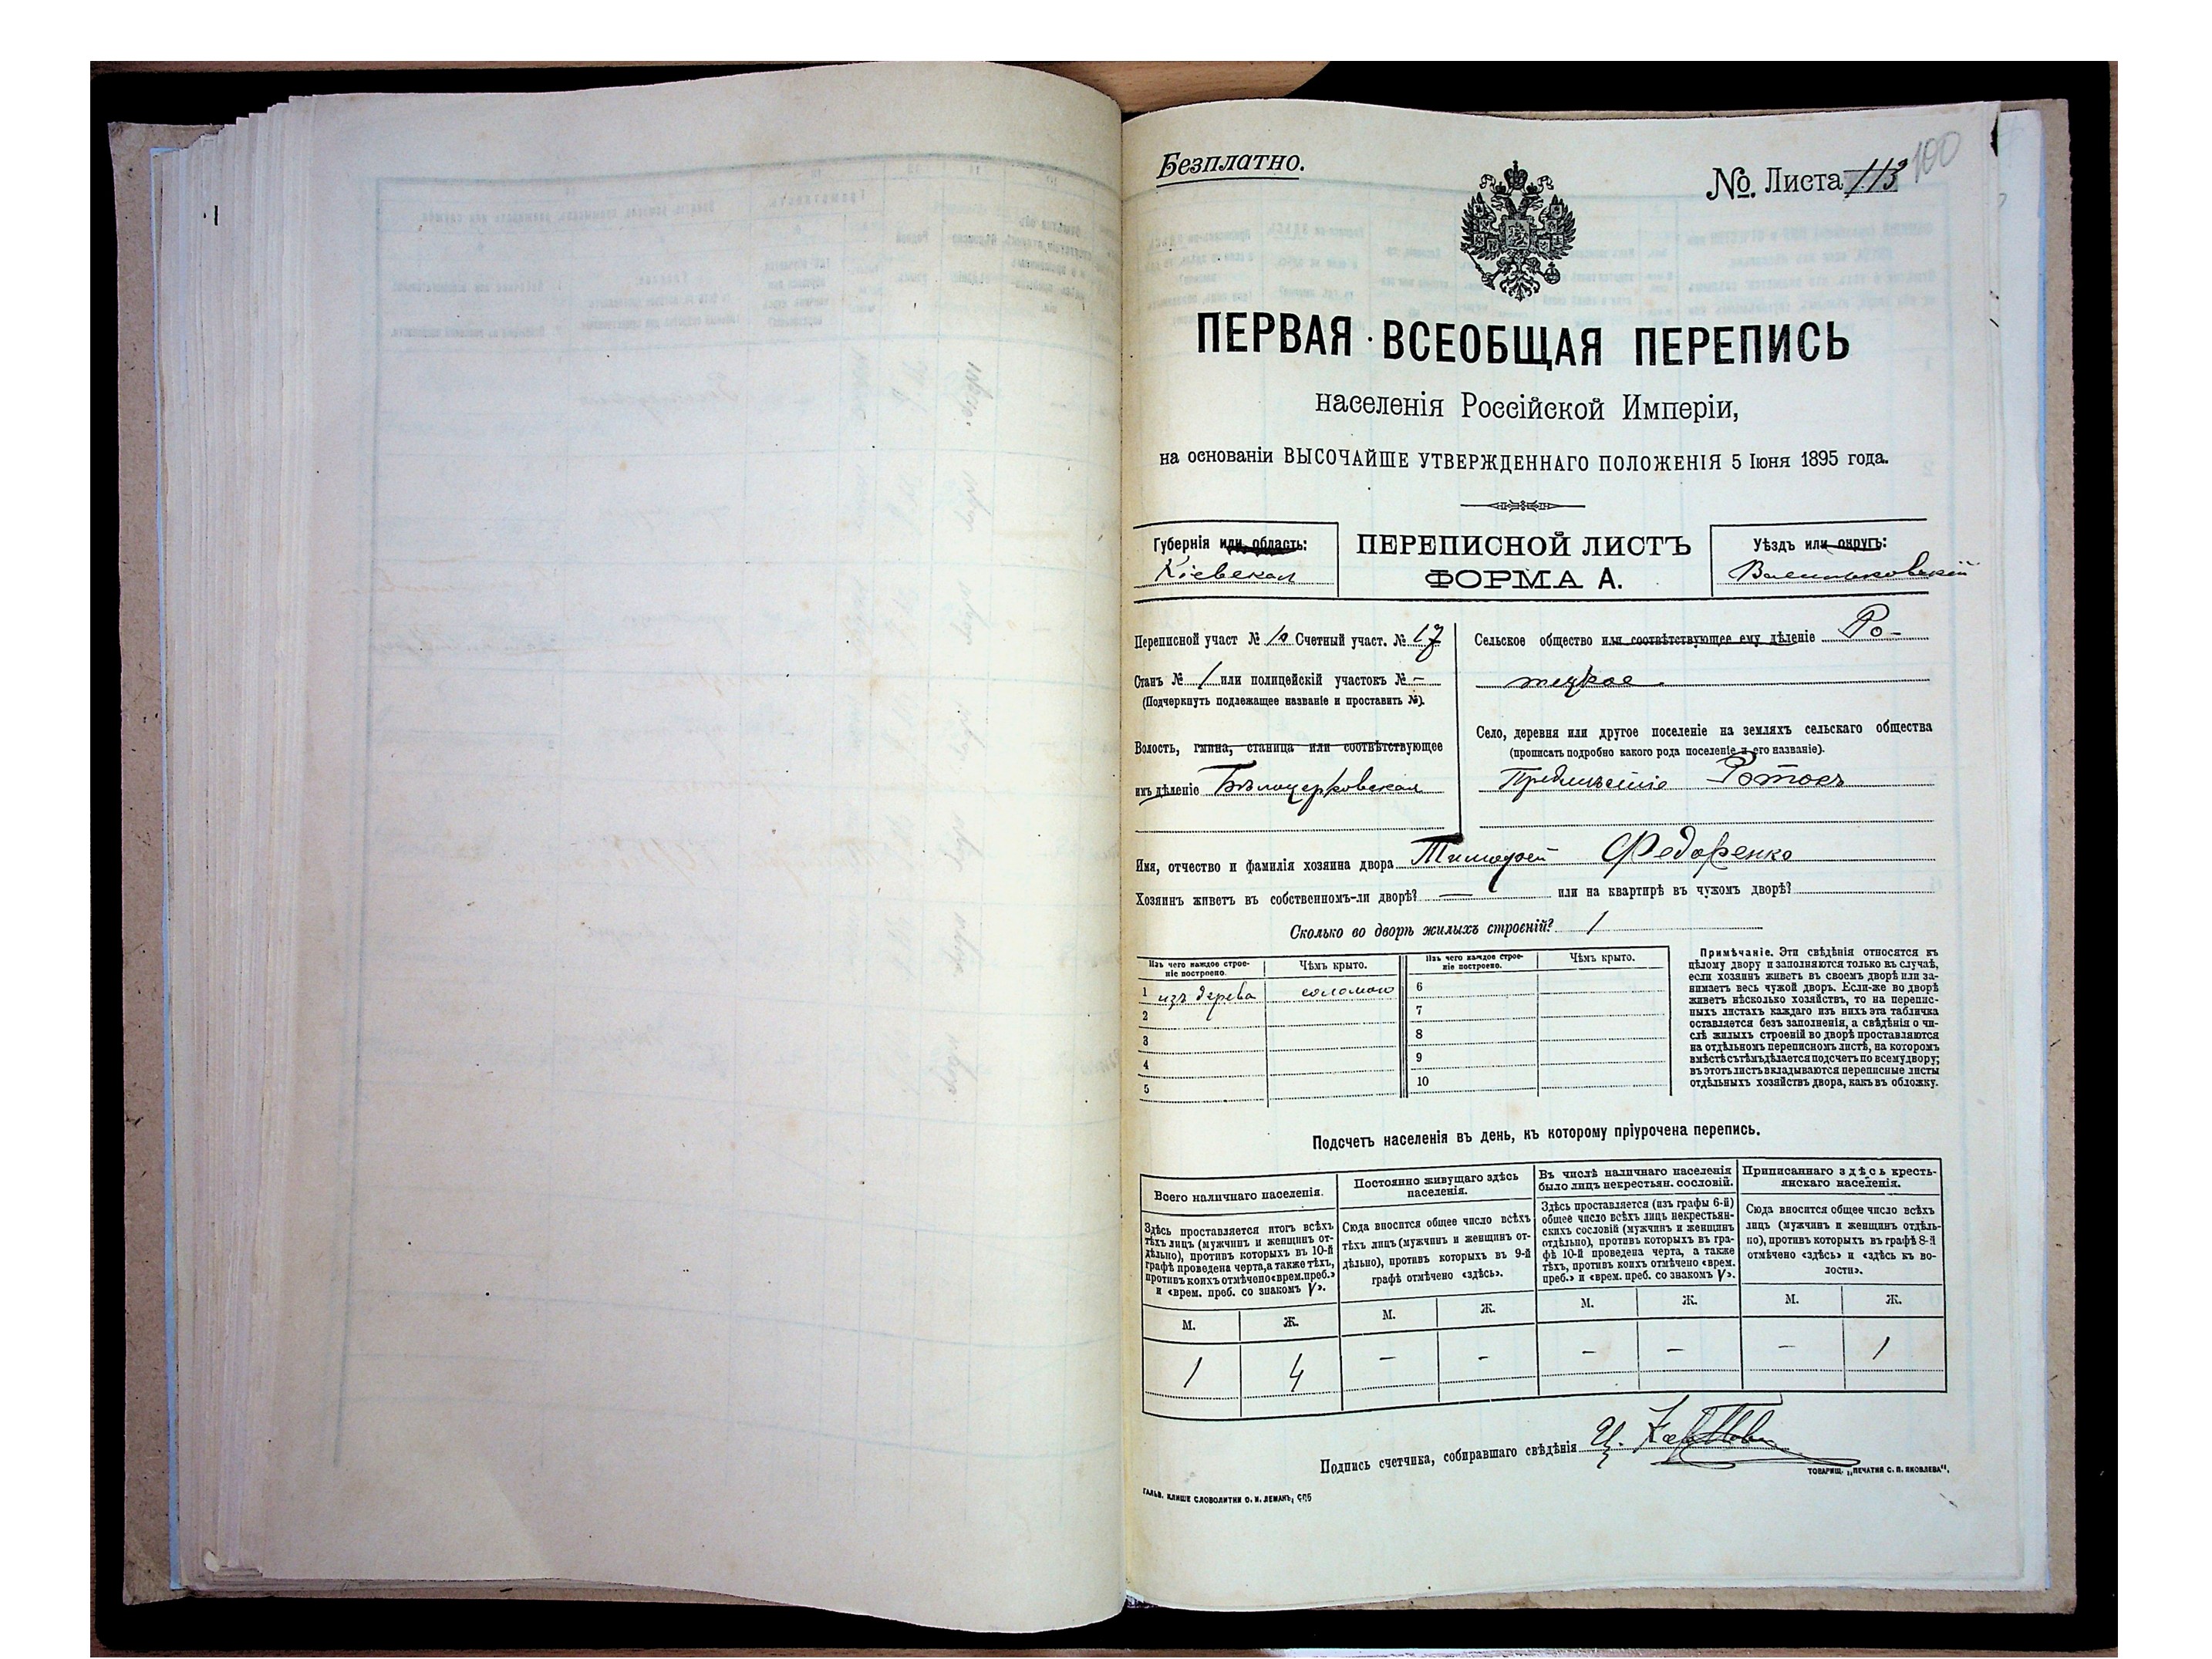 Безплатно.
№ Листа 113
100
ПЕРВАЯ ВСЕОБЩАЯ ПЕРЕПИСЬ
населенія Россійской Имперіи,
на основаніи ВЫСОЧАЙШЕ УТВЕРЖДЕННАГО ПОЛОЖЕНІЯ 5 Іюня 1895 года.
Губернія или область:
Кіевская
ПЕРЕПИСНОЙ ЛИСТЪ
ФОРМА А.
Уѣздъ или округъ:
Васильковскій
Переписной участ № 10 Счетный участ. № 17
Станъ № 1 или полицейскій участокъ № —
(Подчеркнуть подлежащее названіе и проставить №).
Волость, гмина, станица или соотвѣтствующее
имъ дѣленіе Бѣлоцерковская
Сельское общество или соотвѣтствующее ему дѣленіе Ро-
тецкое.
Село, деревня или другое поселеніе на земляхъ сельскаго общества
(прописать подробно какого рода поселеніе и его названіе).
Предмѣстіе Ротокъ
Имя, отчество и фамилія хозяина двора Тимофей Федоренко
Хозяинъ живетъ въ собственномъ-ли дворѣ? — или на квартирѣ въ чужомъ дворѣ?
Сколько во дворѣ жилыхъ строеній? 1
Изъ чего каждое строе-
ніе построено.
Чѣмъ крыто.
1 изъ дерева соломою
2
3
4
5
Изъ чего каждое строе-
ніе построено.
Чѣмъ крыто.
6
7
8
9
10
Примѣчаніе. Эти свѣдѣнія относятся къ
цѣлому двору и заполняются только въ случаѣ,
если хозяинъ живетъ въ своемъ дворѣ или за-
нимаетъ весь чужой дворъ. Если-же во дворѣ
живетъ нѣсколько хозяйствъ, то на перепис-
ныхъ листахъ каждаго изъ нихъ эта табличка
оставляется безъ заполненія, а свѣдѣнія о чи-
слѣ жилыхъ строеній во дворѣ проставляются
на отдѣльномъ переписномъ листѣ, на которомъ
вмѣстѣ съ тѣмъ дѣлается подсчетъ по всему двору;
въ этотъ листъ вкладываются переписные листы
отдѣльныхъ хозяйствъ двора, какъ въ обложку.
Подсчетъ населенія въ день, къ которому пріурочена перепись.
Всего наличнаго населенія.
Здѣсь проставляется итогъ всѣхъ
тѣхъ лицъ (мужчинъ и женщинъ от-
дѣльно), противъ которыхъ въ 10-й
графѣ проведена черта, а также тѣхъ,
противъ коихъ отмѣчено «врем. преб.»
и «врем. преб. со знакомъ V».
М. Ж.
1 4
Постоянно живущаго здѣсь
населенія.
Сюда вносится общее число всѣхъ
тѣхъ лицъ (мужчинъ и женщинъ от-
дѣльно), противъ которыхъ въ 9-й
графѣ отмѣчено «здѣсь».
М. Ж.
— —
Въ числѣ наличнаго населенія
было лицъ некрестьян. сословій.
Здѣсь проставляется (изъ графы 6-й)
общее число всѣхъ лицъ некрестьян-
скихъ сословій (мужчинъ и женщинъ
отдѣльно), противъ которыхъ въ гра-
фѣ 10-й проведена черта, а также
тѣхъ, противъ коихъ отмѣчено «врем.
преб.» и «врем. преб. со знакомъ V».
М. Ж.
— —
Приписаннаго здѣсь кресть-
янскаго населенія.
Сюда вносится общее число всѣхъ
лицъ (мужчинъ и женщинъ отдѣль-
но), противъ которыхъ въ графѣ 8-й
отмѣчено «здѣсь» и «здѣсь къ во-
лости».
М. Ж.
— 1
Подпись счетчика, собиравшаго свѣдѣнія
ГАЛЬВ. КЛИШЕ СЛОВОЛИТНИ О. И. ЛЕМАНЪ, СПБ
ТОВАРИЩ. „ПЕЧАТНЯ С. П. ЯКОВЛЕВА“.